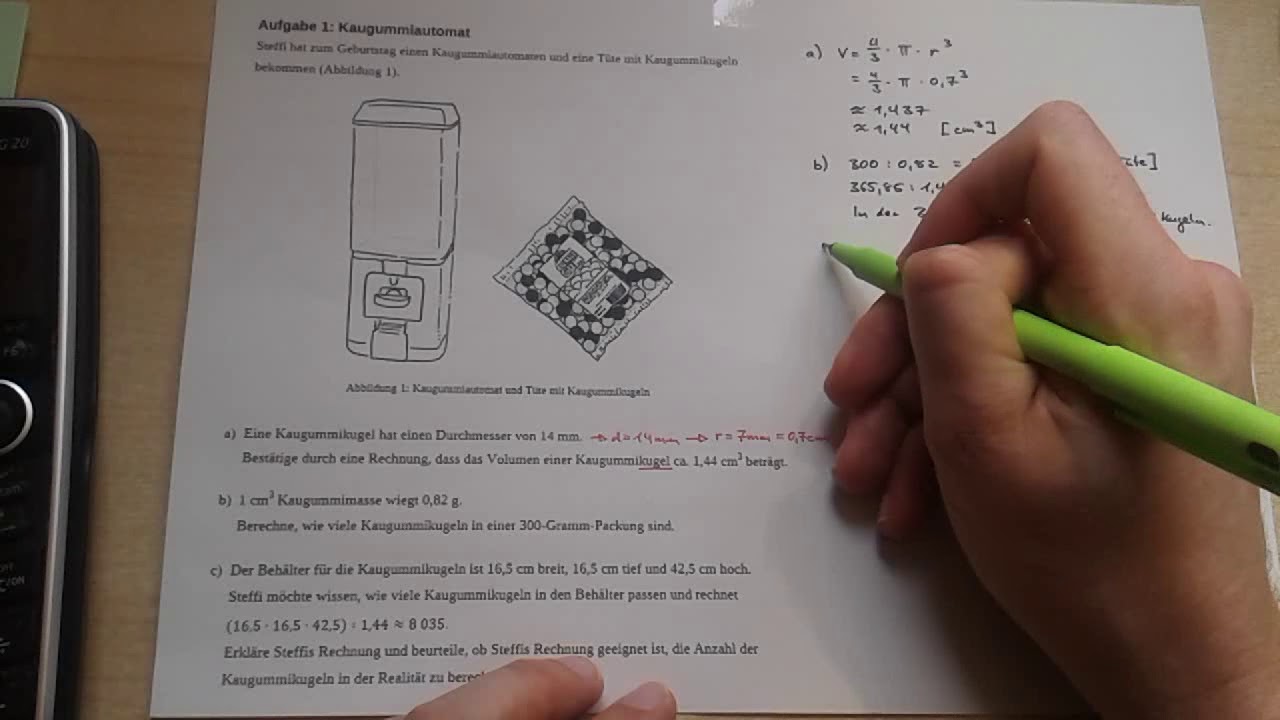 Aufgabe 1: Kaugummiautomat
Steffi hat zum Geburtstag einen Kaugummiautomaten und eine Tüte mit Kaugummikugeln
bekommen (Abbildung 1).
Abbildung 1: Kaugummiautomat und Tüte mit Kaugummikugeln
a) Eine Kaugummikugel hat einen Durchmesser von 14 mm. → d=14mm → r = 7mm = 0,7cm
Bestätige durch eine Rechnung, dass das Volumen einer Kaugummikugel ca. 1,44 cm³ beträgt.
b) 1 cm³ Kaugummimasse wiegt 0,82 g.
Berechne, wie viele Kaugummikugeln in einer 300-Gramm-Packung sind.
c) Der Behälter für die Kaugummikugeln ist 16,5 cm breit, 16,5 cm tief und 42,5 cm hoch.
Steffi möchte wissen, wie viele Kaugummikugeln in den Behälter passen und rechnet
(16,5 · 16,5 · 42,5) : 1,44 ≈ 8 035.
Erkläre Steffis Rechnung und beurteile, ob Steffis Rechnung geeignet ist, die Anzahl der
Kaugummikugeln in der Realität zu
a) V = 4/3 · π · r³
= 4/3 · π · 0,7³
≈ 1,437
≈ 1,44 [cm³]
b) 300 : 0,82 =
365,85 : 1,4
In der Kugeln.